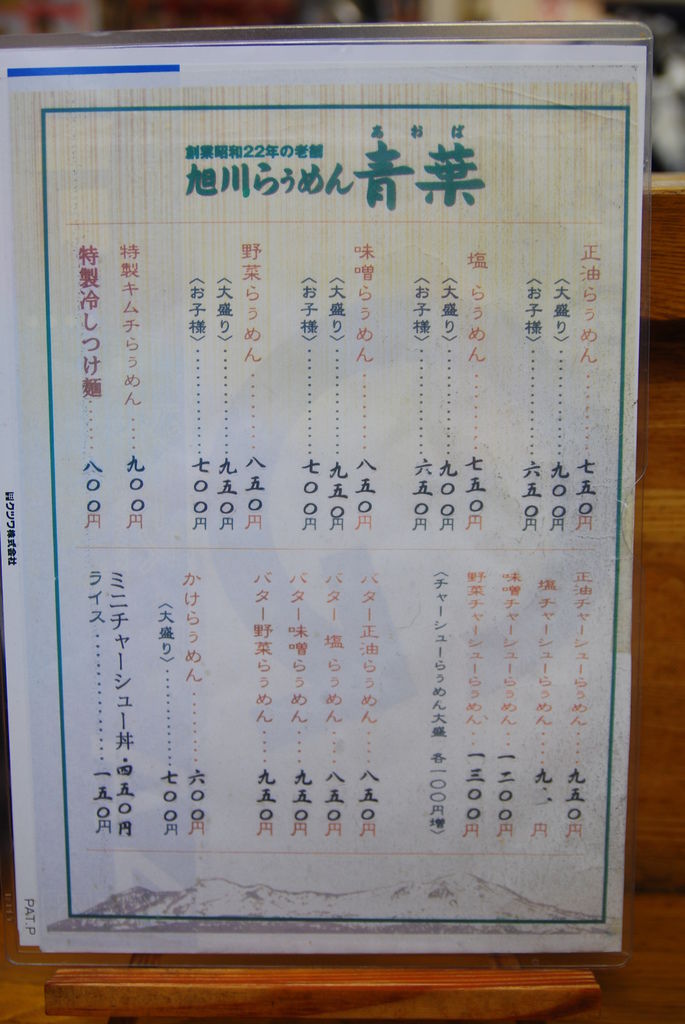 創業昭和22年の老舗
あおば
旭川らぅめん青葉
正油らぅめん………七五〇円
〈大盛り〉…………九〇〇円
〈お子様〉…………六五〇円
塩らぅめん………七五〇円
〈大盛り〉…………九〇〇円
〈お子様〉…………六五〇円
味噌らぅめん………八五〇円
〈大盛り〉…………九五〇円
〈お子様〉…………七〇〇円
野菜らぅめん………八五〇円
〈大盛り〉…………九五〇円
〈お子様〉…………七〇〇円
特製キムチらぅめん…九〇〇円
特製冷しつけ麺……八〇〇円
正油チャーシューらぅめん…九五〇円
塩チャーシューらぅめん…九 円
味噌チャーシューらぅめん…一二〇〇円
野菜チャーシューらぅめん…一三〇〇円
〈チャーシューらぅめん大盛 各一〇〇円増〉
バター正油らぅめん…八五〇円
バター塩らぅめん…八五〇円
バター味噌らぅめん…九五〇円
バター野菜らぅめん…九五〇円
かけらぅめん………六〇〇円
〈大盛り〉…………七〇〇円
ミニチャーシュー丼・四五〇円
ライス…………一五〇円
クツワ株式会社
PAT.P